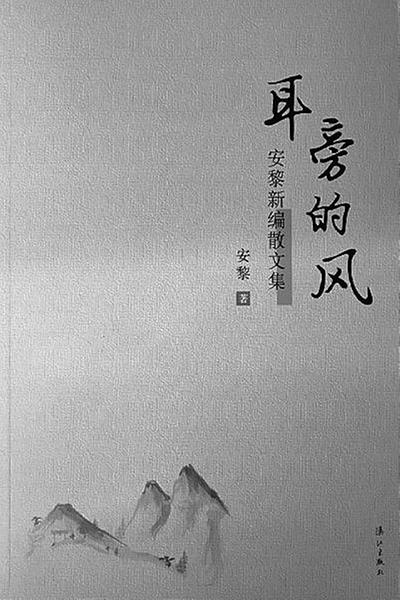 耳旁的风
安黎新编散文集
安黎 著
漓江出版社